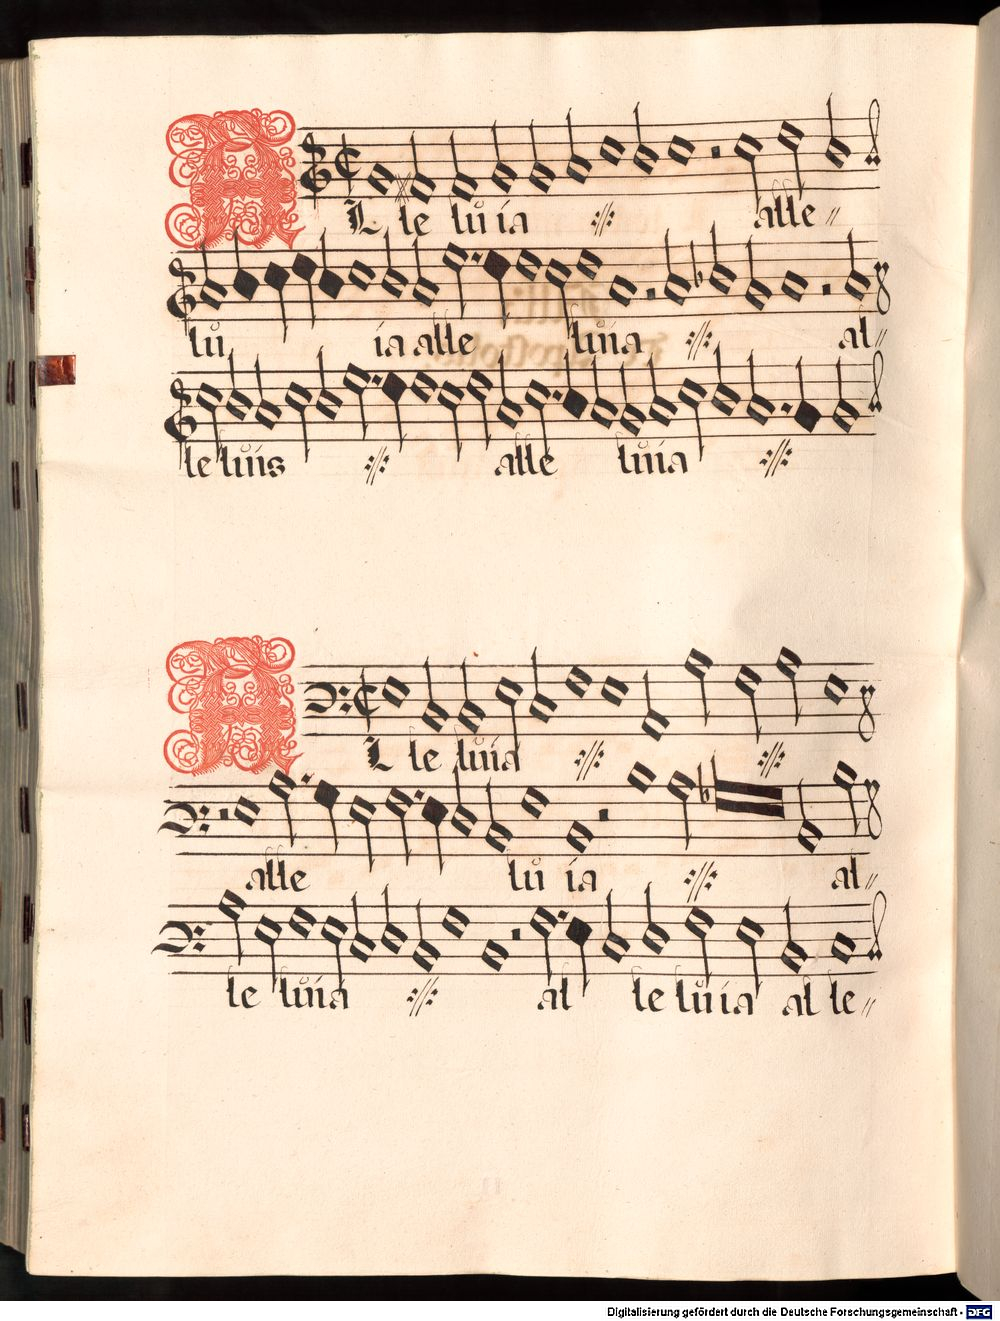 AL le lů ia ·//· alle //
lů ia alle lůia ·//· al //
le lůis ·//· alle lůia ·//·
AL le lůia ·//· ·//·
alle lů ia ·//· al //
le lůia ·//· al le lůia al le //
Digitalisierung gefördert durch die Deutsche Forschungsgemeinschaft - DFG